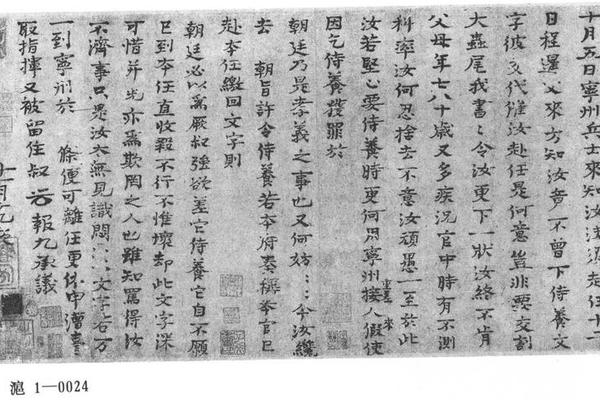 十月五日寧州兵士來知汝淺須赴任十二
日程邐父來方知汝竟不曾下侍養文
字彼交代催汝赴任是何意豈非要交割
大蟲尾我書〻令汝更下一狀汝終不肯
父母年七八十歲又多疾況官中時有不測
科率汝何忍捨去不意汝頑愚一至於此
汝若堅心要侍養時更何用寧州接人假使
因乞侍養獲罪於
朝廷乃是孝義之事也又何妨〻〻今汝纔
去 朝旨許令侍養若本府奏稱本官已
赴本任繳回文字則
朝廷必以為厥叔強欲差它侍養它自不願
已到本任直收殺不行不惟壞却此文字深
可惜并光亦為欺罔之人也雖知罵得汝
不濟事只恐汝大無見識悶〻〻文字若万
一到寧州於 條便可離任更供申漕臺
取指揮又被留住叔 報九承議
十一月九
滬 1—0024